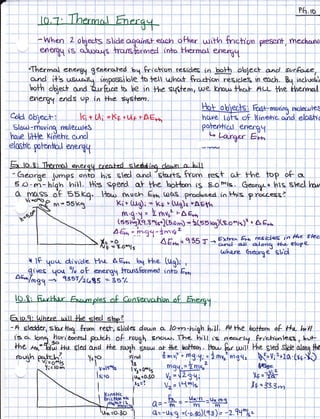 Ph.10
10.7: Thermal Energy
- When 2 objects slide against each other with friction present, mechanical
energy is always transformed into thermal energy
- Thermal energy generated by friction resides in both object and surface,
and it's usually impossible to tell what fraction resides in each. By including
both object and surface to be in the system, we know that ALL the thermal
energy ends up in the system.
Cold Object:
Slow-moving molecules
have little kinetic and
elastic potential energy
Ki + Ui = Kf + Uf + ΔEth
Hot objects: Fast-moving molecules
have lots of kinetic and elastic
potential energy
↳ Larger Eth
Ex 10.8: Thermal energy created sledding down a hill
- George jumps onto his sled and starts from rest at the top of a
5.0-m-high hill. His speed at the bottom is 8.0 m/s. George + his sled have
a mass of 55kg. How much Eth was produced in this process?
m = 55kg
Ki + (Ug)i = Kf + (Ug)f + ΔEth
m·g·y = ½mv² + ΔEth
ΔEth = mgy - ½mv²
ΔEth = 935 J → Extra Eth resides in the sled
and all along the slope
where George slid
* If you divide the ΔEth by the (Ug)i,
gives you % of energy transformed into Eth
ΔEth/mgy → 35%
10.8: Further Examples of Conservation of Energy
Ex 10.9: Where will the sled stop?
- A sledder, starting from rest, slides down a 10-m-high hill. At the bottom of the hill
is a long horizontal patch of rough snow. The hill is nearly frictionless, but
the sled and the rough snow at the bottom. How far will the sled slide along the
rough patch?
½mv² + mgy
mgyi = ½mv²
v = √2gyi
v = 14 m/s
Kinetic
friction
μk = 0.30
a = -μk·g = -(0.30)(9.8) = -2.94 m/s²
= 33.3m